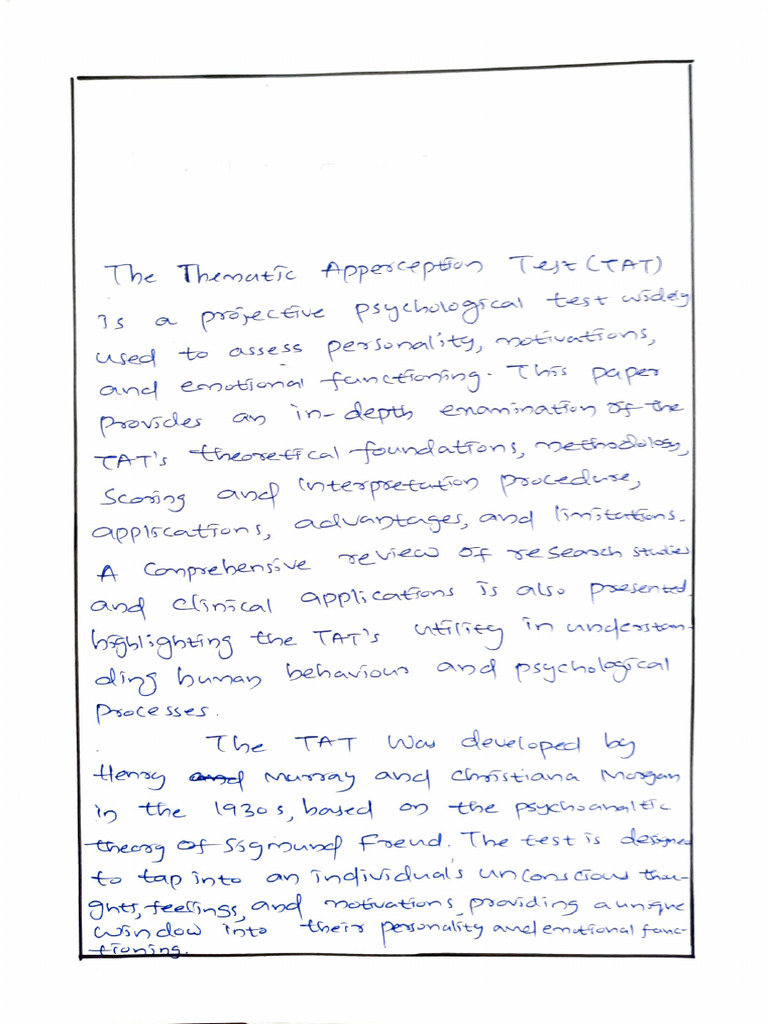 The Thematic Apperception Test (TAT)
is a projective psychological test widely
used to assess personality, motivations,
and emotional functioning. This paper
provides an in-depth examination of the
TAT's theoretical foundations, methodology,
Scoring and interpretation procedure,
applications, advantages, and limitations.
A comprehensive review of research studies
and clinical applications is also presented,
highlighting the TAT's utility in understan-
ding human behaviour and psychological
processes.
The TAT was developed by
Henry and Murray and Christiana Morgan
in the 1930s, based on the psychoanaltic
theory of Sigmund Freud. The test is designed
to tap into an individual's unconscious thou-
ghts, feelings, and motivations, providing a unique
window into their personality and emotional func-
tioning.